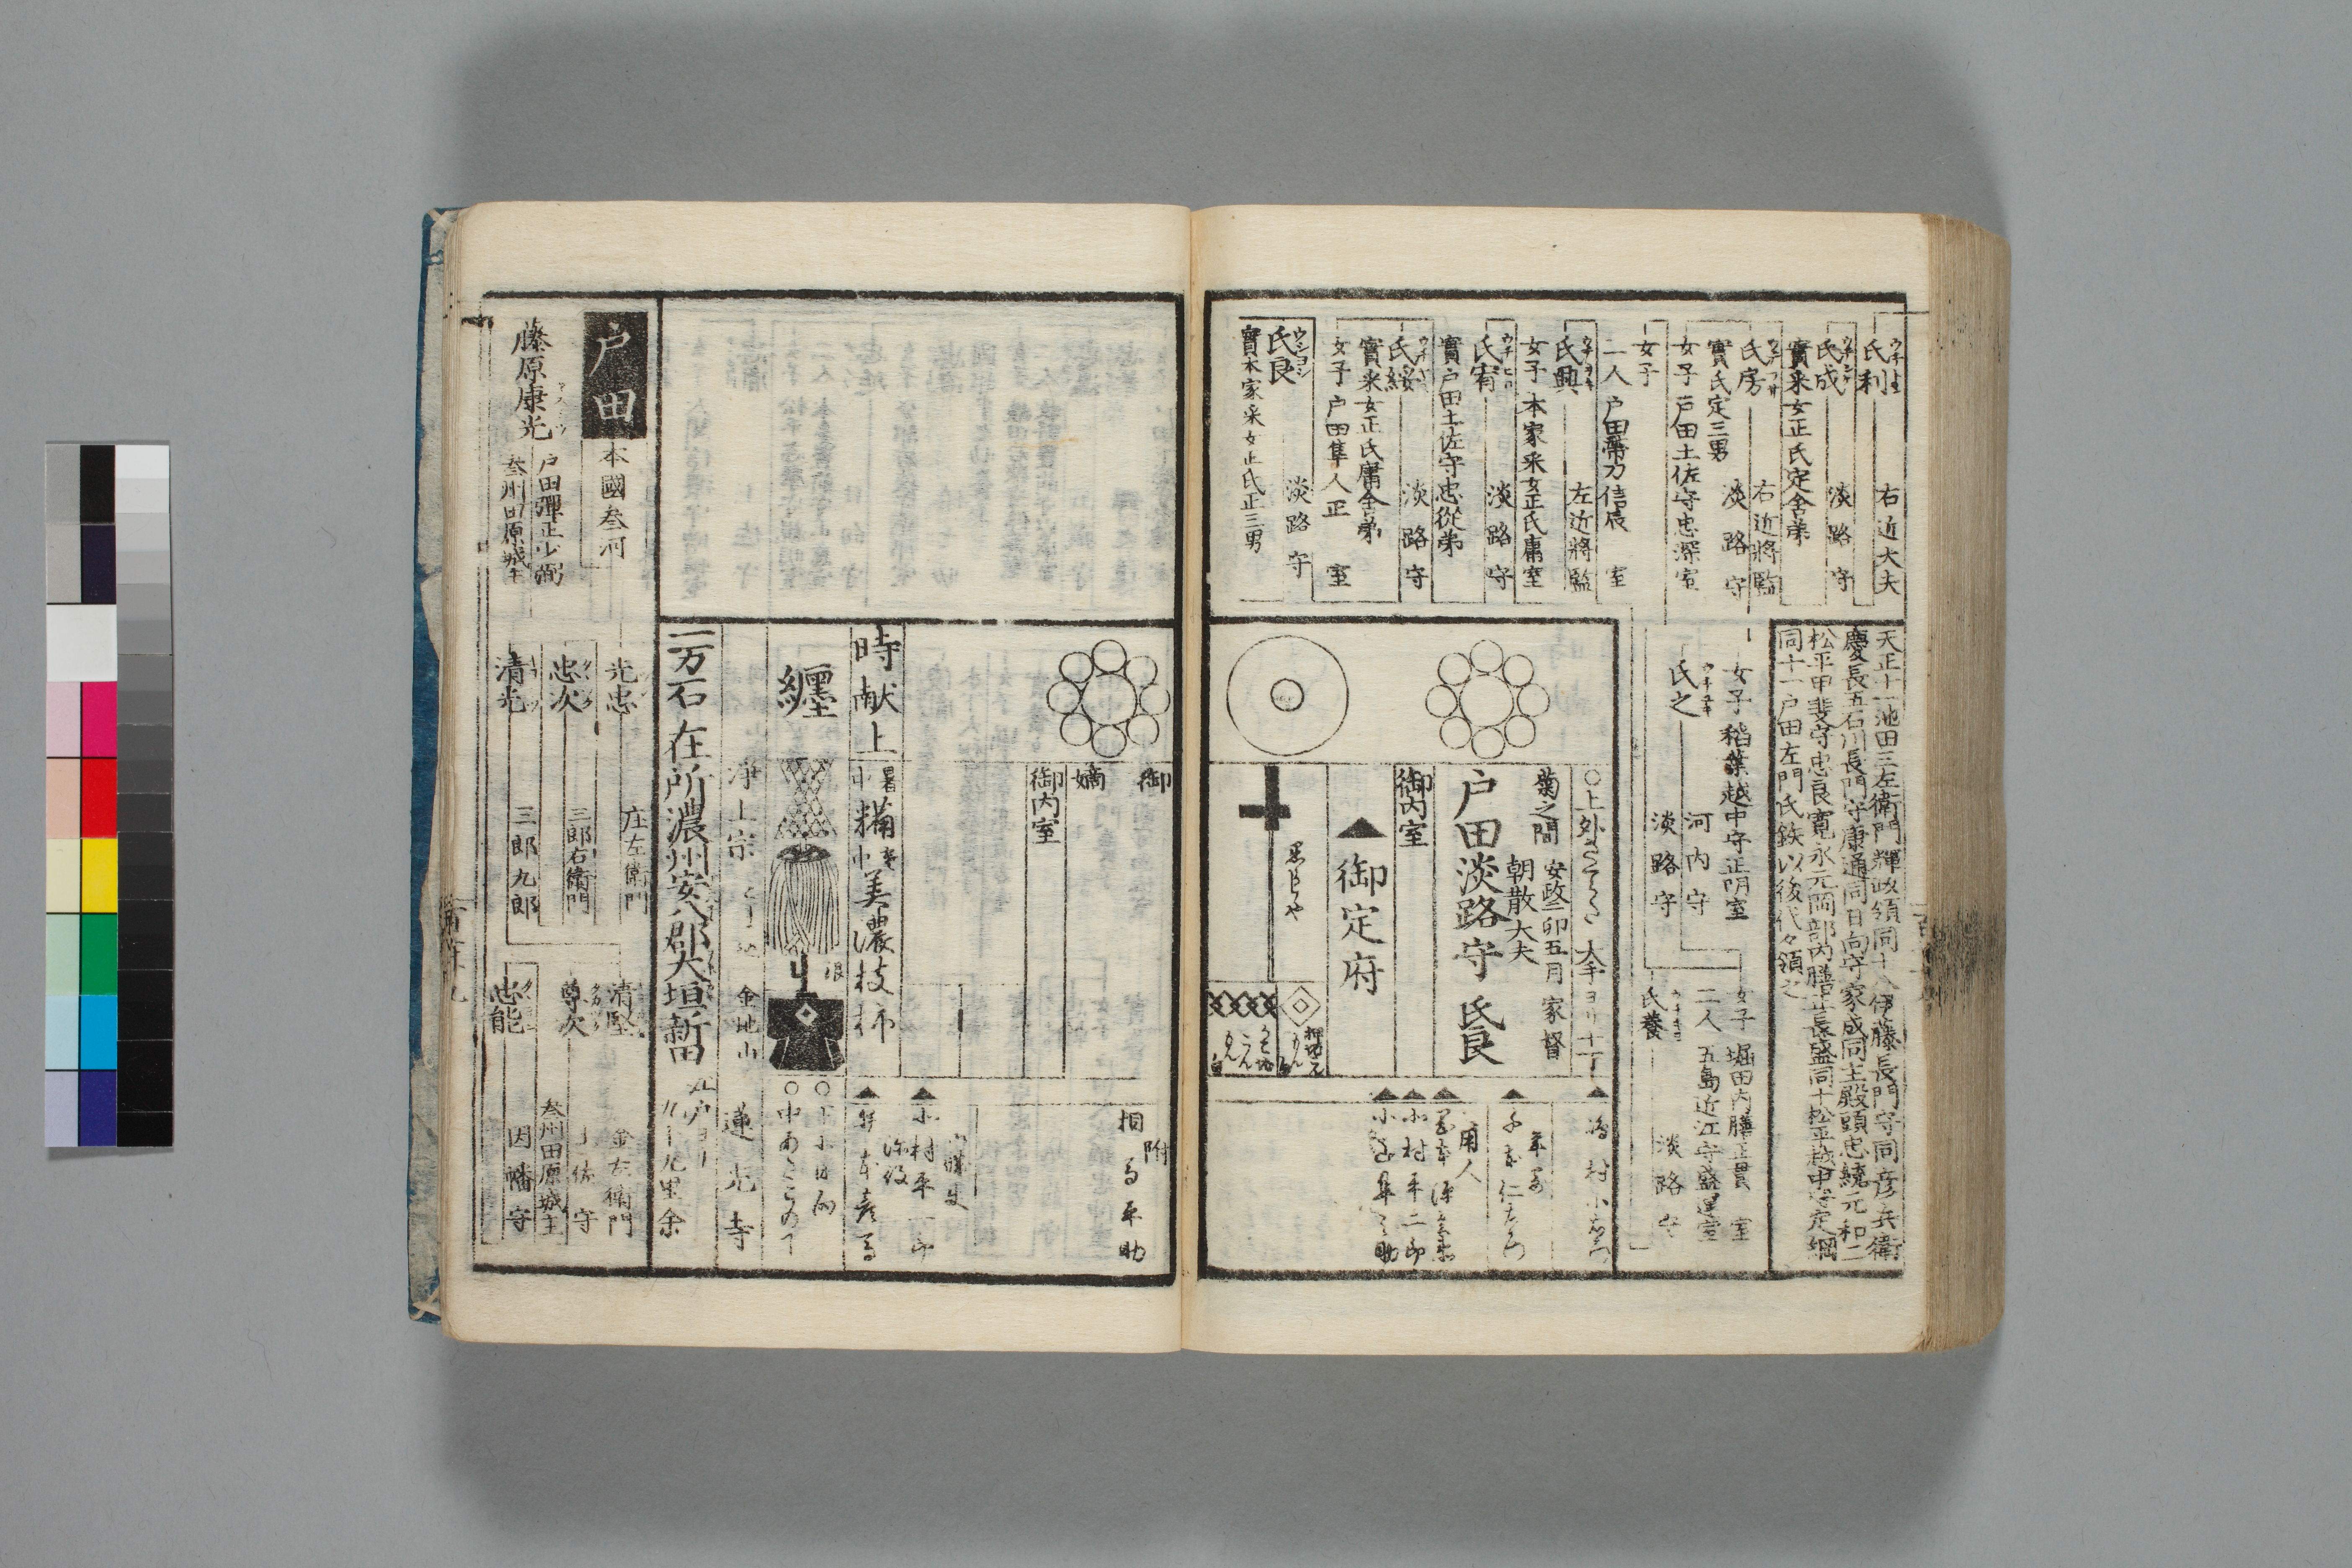 氏利
右近大夫
氏成
淡路守
實采女正氏定舎弟
氏房
右近將監
淡路守
實氏定三男
女子 戸田土佐守忠深室
女子
二人 戸田帶刀信辰 室
氏興
左近將監
女子 本家采女正氏庸室
氏宥
淡路守
實戸田土佐守忠從弟
氏綏
淡路守
實采女正氏庸舎弟
女子 戸田隼人正 室
氏良
淡路守
實本家采女正氏正三男
天正十一池田三左衛門輝政領同十八伊藤長門守同彦兵衛
慶長五石川長門守康通同日向守家成同主殿頭忠總元和二
松平甲斐守忠良寛永元岡部内膳正長盛同十松平越中守定綱
同十一戸田左門氏鉄以後代々領之
女子 稲葉越中守正明室
氏之
河内守
淡路守
女子 堀田内膳正貫 室
二人 五島近江守盛運室
氏養
淡路守
大手ヨリ十一丁
菊之間
安政二卯五月家督
朝散大夫
戸田淡路守氏良
御内室
▲御定府
用人
御
嫡
御内室
附
時献上
暑中
糒
寒中
美濃枝柿
纏
浄土宗
金地山
蓮光寺
一万石 在所濃州安八郡大垣新田
江戸ヨリ
九十九里余
戸田
本國参河
藤原康光
戸田彈正少弼
参州田原城主
光忠
庄左衛門
忠次
三郎右衛門
清光
三郎九郎
清堅
金左衛門
尊次
土佐守
参州田原城主
忠能
因幡守